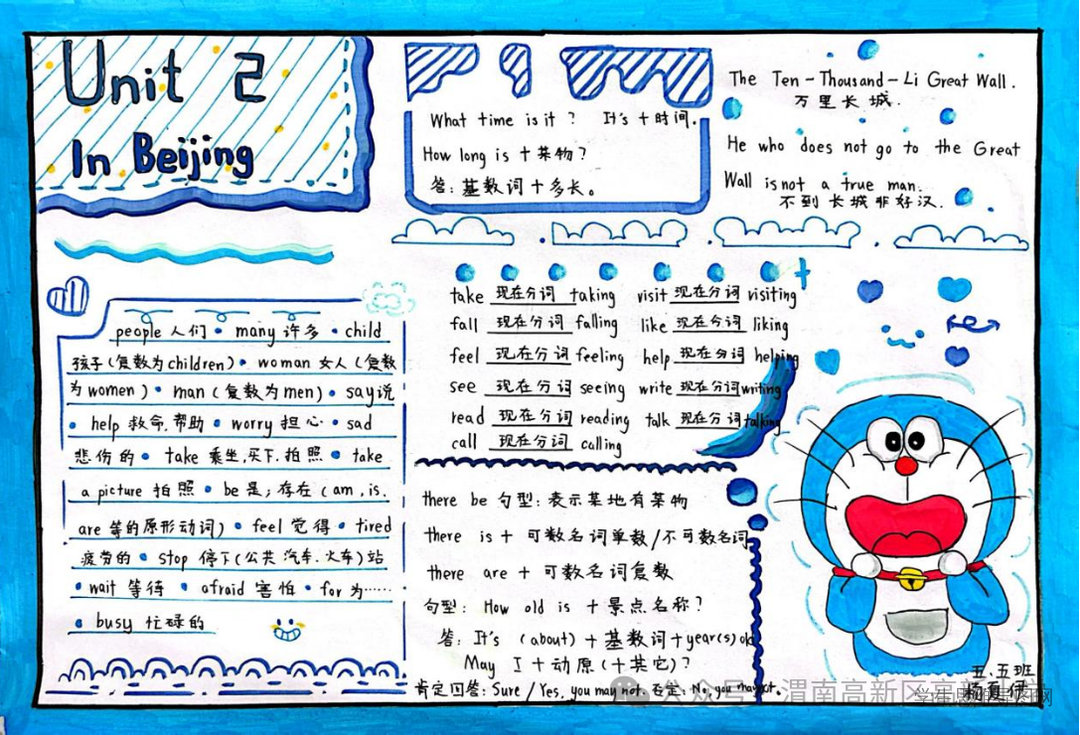 Unit 2
In Beijing
What time is it ? It's + 时间.
How long is + 某物?
答: 基数词 + 多长。
The Ten-Thousand-Li Great Wall.
万里长城.
He who does not go to the Great
Wall is not a true man.
不到长城非好汉.
people 人们 • many 许多 • child
孩子(复数为children) • woman 女人(复数
为women) • man (复数为men) • say说
• help 救命,帮助 • worry 担心 • sad
悲伤的 • take 乘坐,买下.拍照 • take
a picture 拍照 • be 是; 存在(am, is,
are 等的原形动词) • feel 觉得 • tired
疲劳的 • stop 停下(公共汽车.火车)站
• wait 等待 • afraid 害怕 • for 为……
• busy 忙碌的
take 现在分词 taking visit 现在分词 visiting
fall 现在分词 falling like 现在分词 liking
feel 现在分词 feeling help 现在分词 helping
see 现在分词 seeing write 现在分词 writing
read 现在分词 reading talk 现在分词 talking
call 现在分词 calling
there be 句型: 表示某地有某物
there is + 可数名词单数/不可数名词
there are + 可数名词复数
句型: How old is + 景点名称?
答: It's (about) + 基数词 + year(s) old
May I + 动原(+其它)?
肯定回答: Sure / Yes, you may not. 否定: No, you may not.
五.五班
公众号 渭南高新区高新